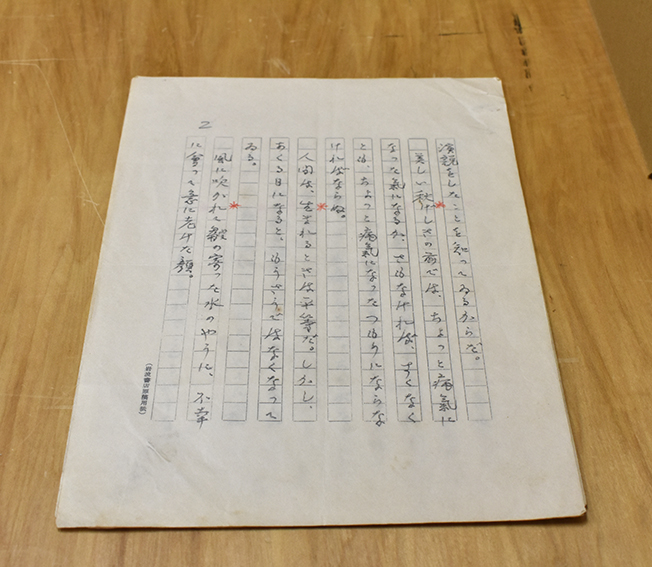 2
演説をしたことを知つてゐるからだ。
*
美しい秋げしきの前では、ちよつと病氣に
なつた氣になるか、さもなければ、すくなく
とも、ちよつと病氣になつたつもりにならな
ければならぬ。
*
人間は、生まれるときは平等だ。しかし、
あくる日になると、もうさうではなくなつて
ゐる。
*
風に吹かれて皺の寄つた水のやうに、不幸
に會つて急に老けた顔。
(岩波書店原稿用紙)